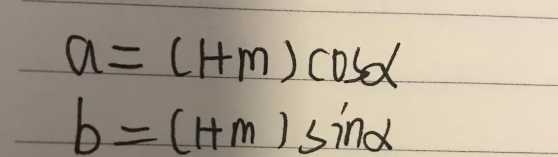 a=(1+m)cosα
b=(1+m)sinα